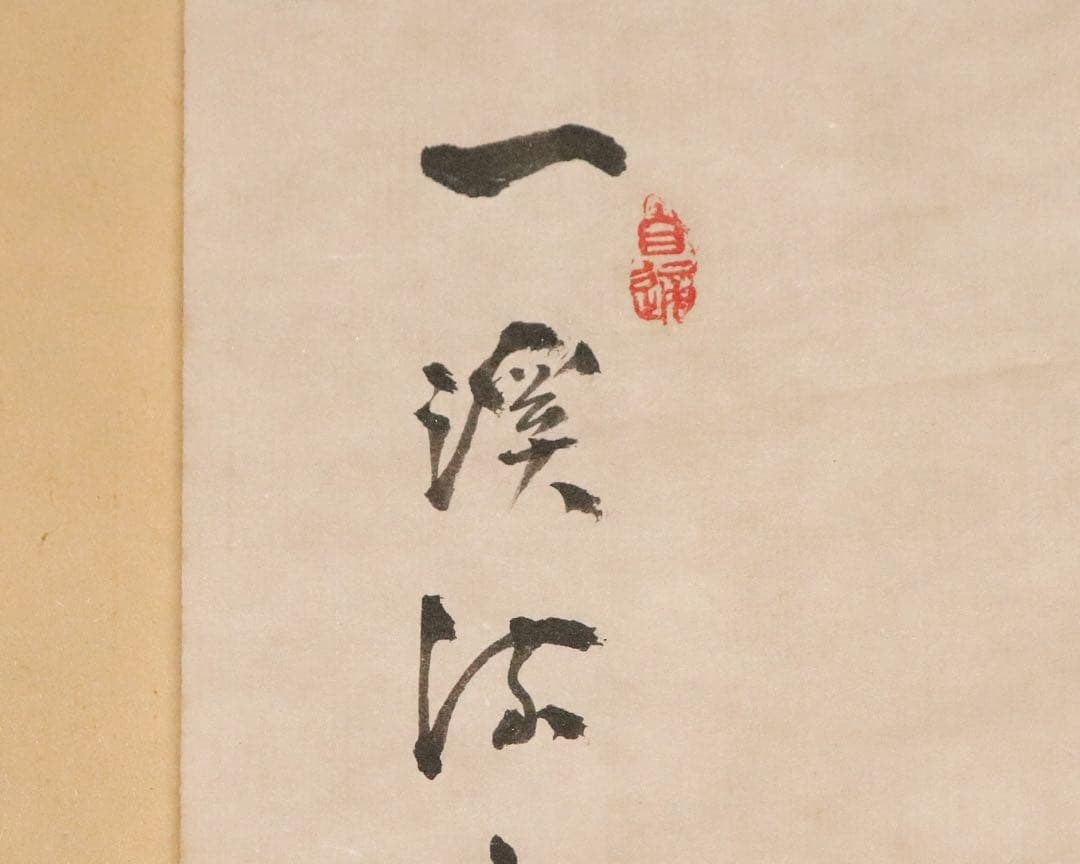 一溪流
自適